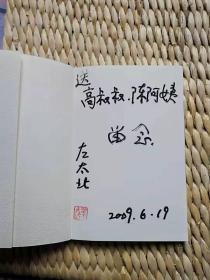 送
高叔叔、陈阿姨
留念
左太北
2009.6.19